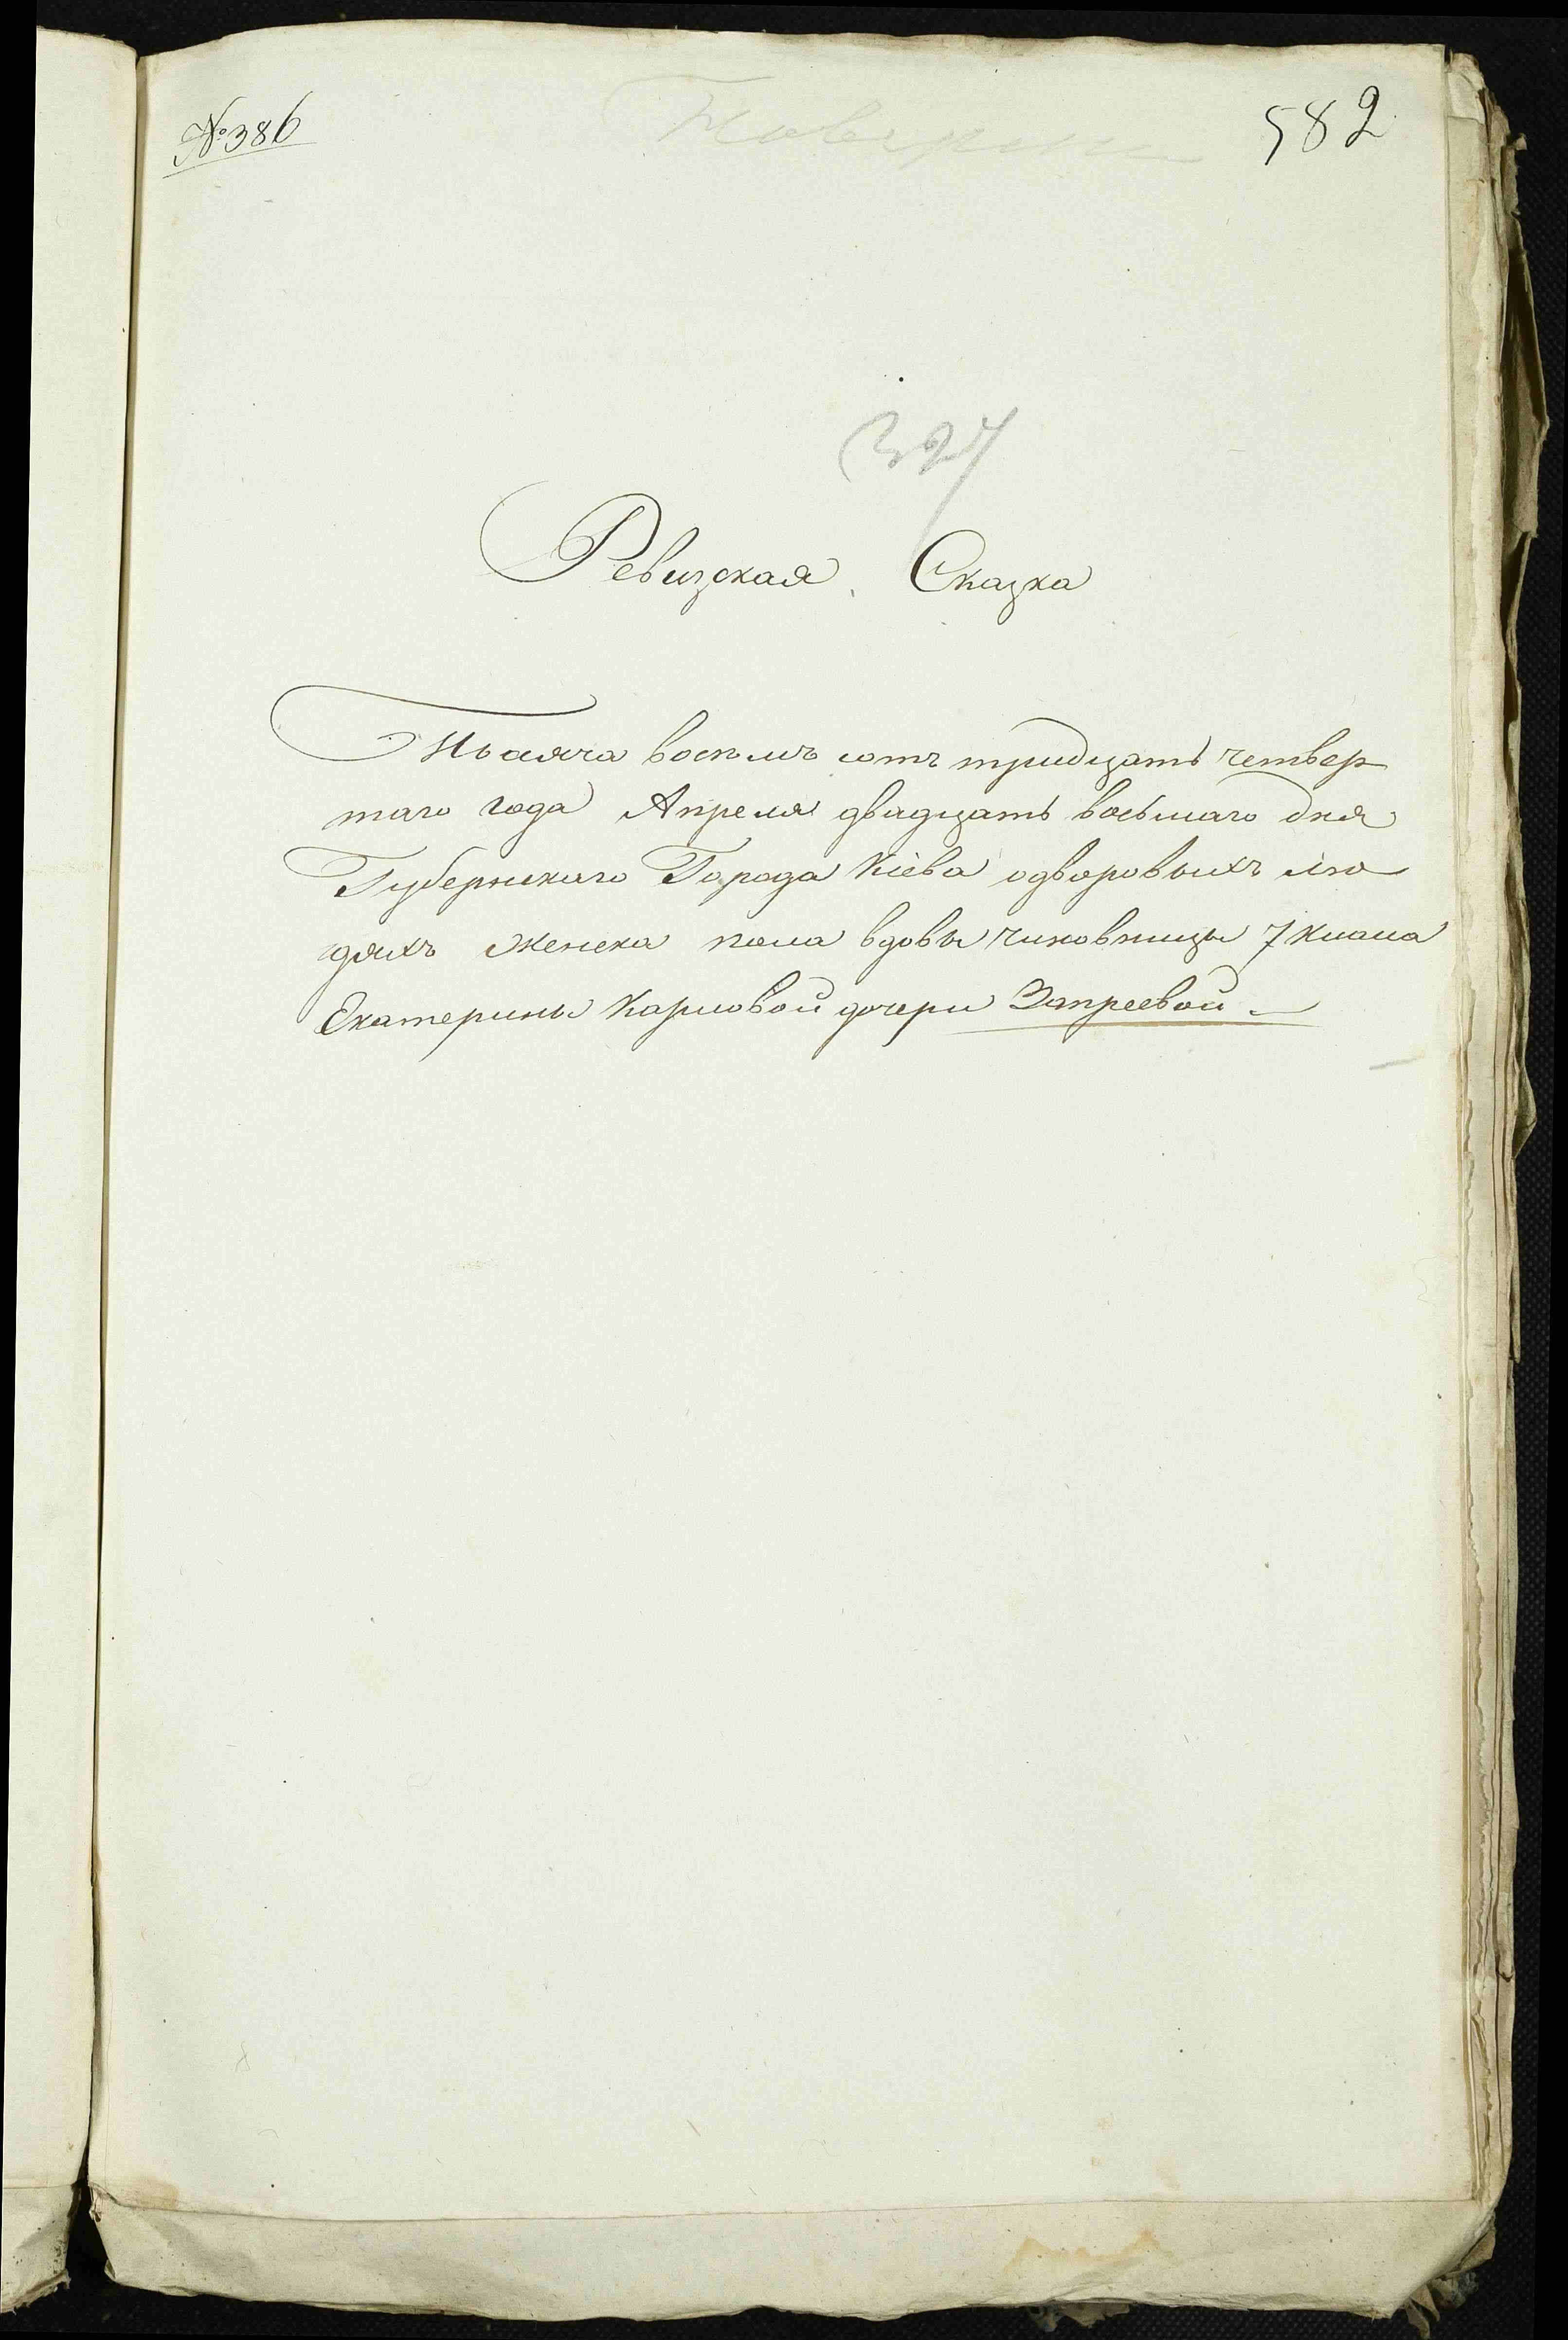 № 386
582
327
Ревизская Сказка
Тысяча восемъ сотъ тридцать четвер
таго года Апреля двадцать восьмаго дня
Губернскаго Города Кіева одворовыхъ лю
дяхъ женска пола вдовы чиновницы 7 класа
Екатерины Карловой дочери Запреевой